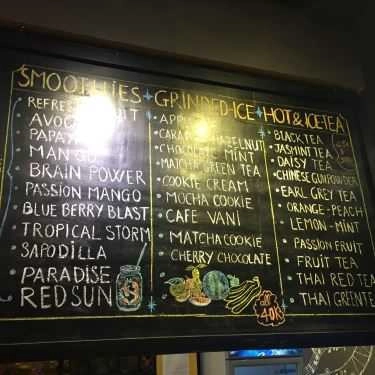 SMOOTHIES
REFRESH FRUIT
AVOCADO
PAPAYA
MANGO
BRAIN POWER
PASSION MANGO
BLUE BERRY BLAST
TROPICAL STORM
SAPODILLA
PARADISE
RED SUN
GRINDED-ICE
APPLE
CARAMEL HAZELNUT
CHOCOLATE MINT
MATCHA GREEN TEA
COOKIE CREAM
MOCHA COOKIE
CAFE VANI
MATCHA COOKIE
CHERRY CHOCOLATE
HOT & ICE TEA
BLACK TEA
JASMINE TEA
DAISY TEA
CHINESE GUNPOWDER
EARL GREY TEA
ORANGE - PEACH
LEMON - MINT
PASSION FRUIT
FRUIT TEA
THAI RED TEA
THAI GREEN TE
40K